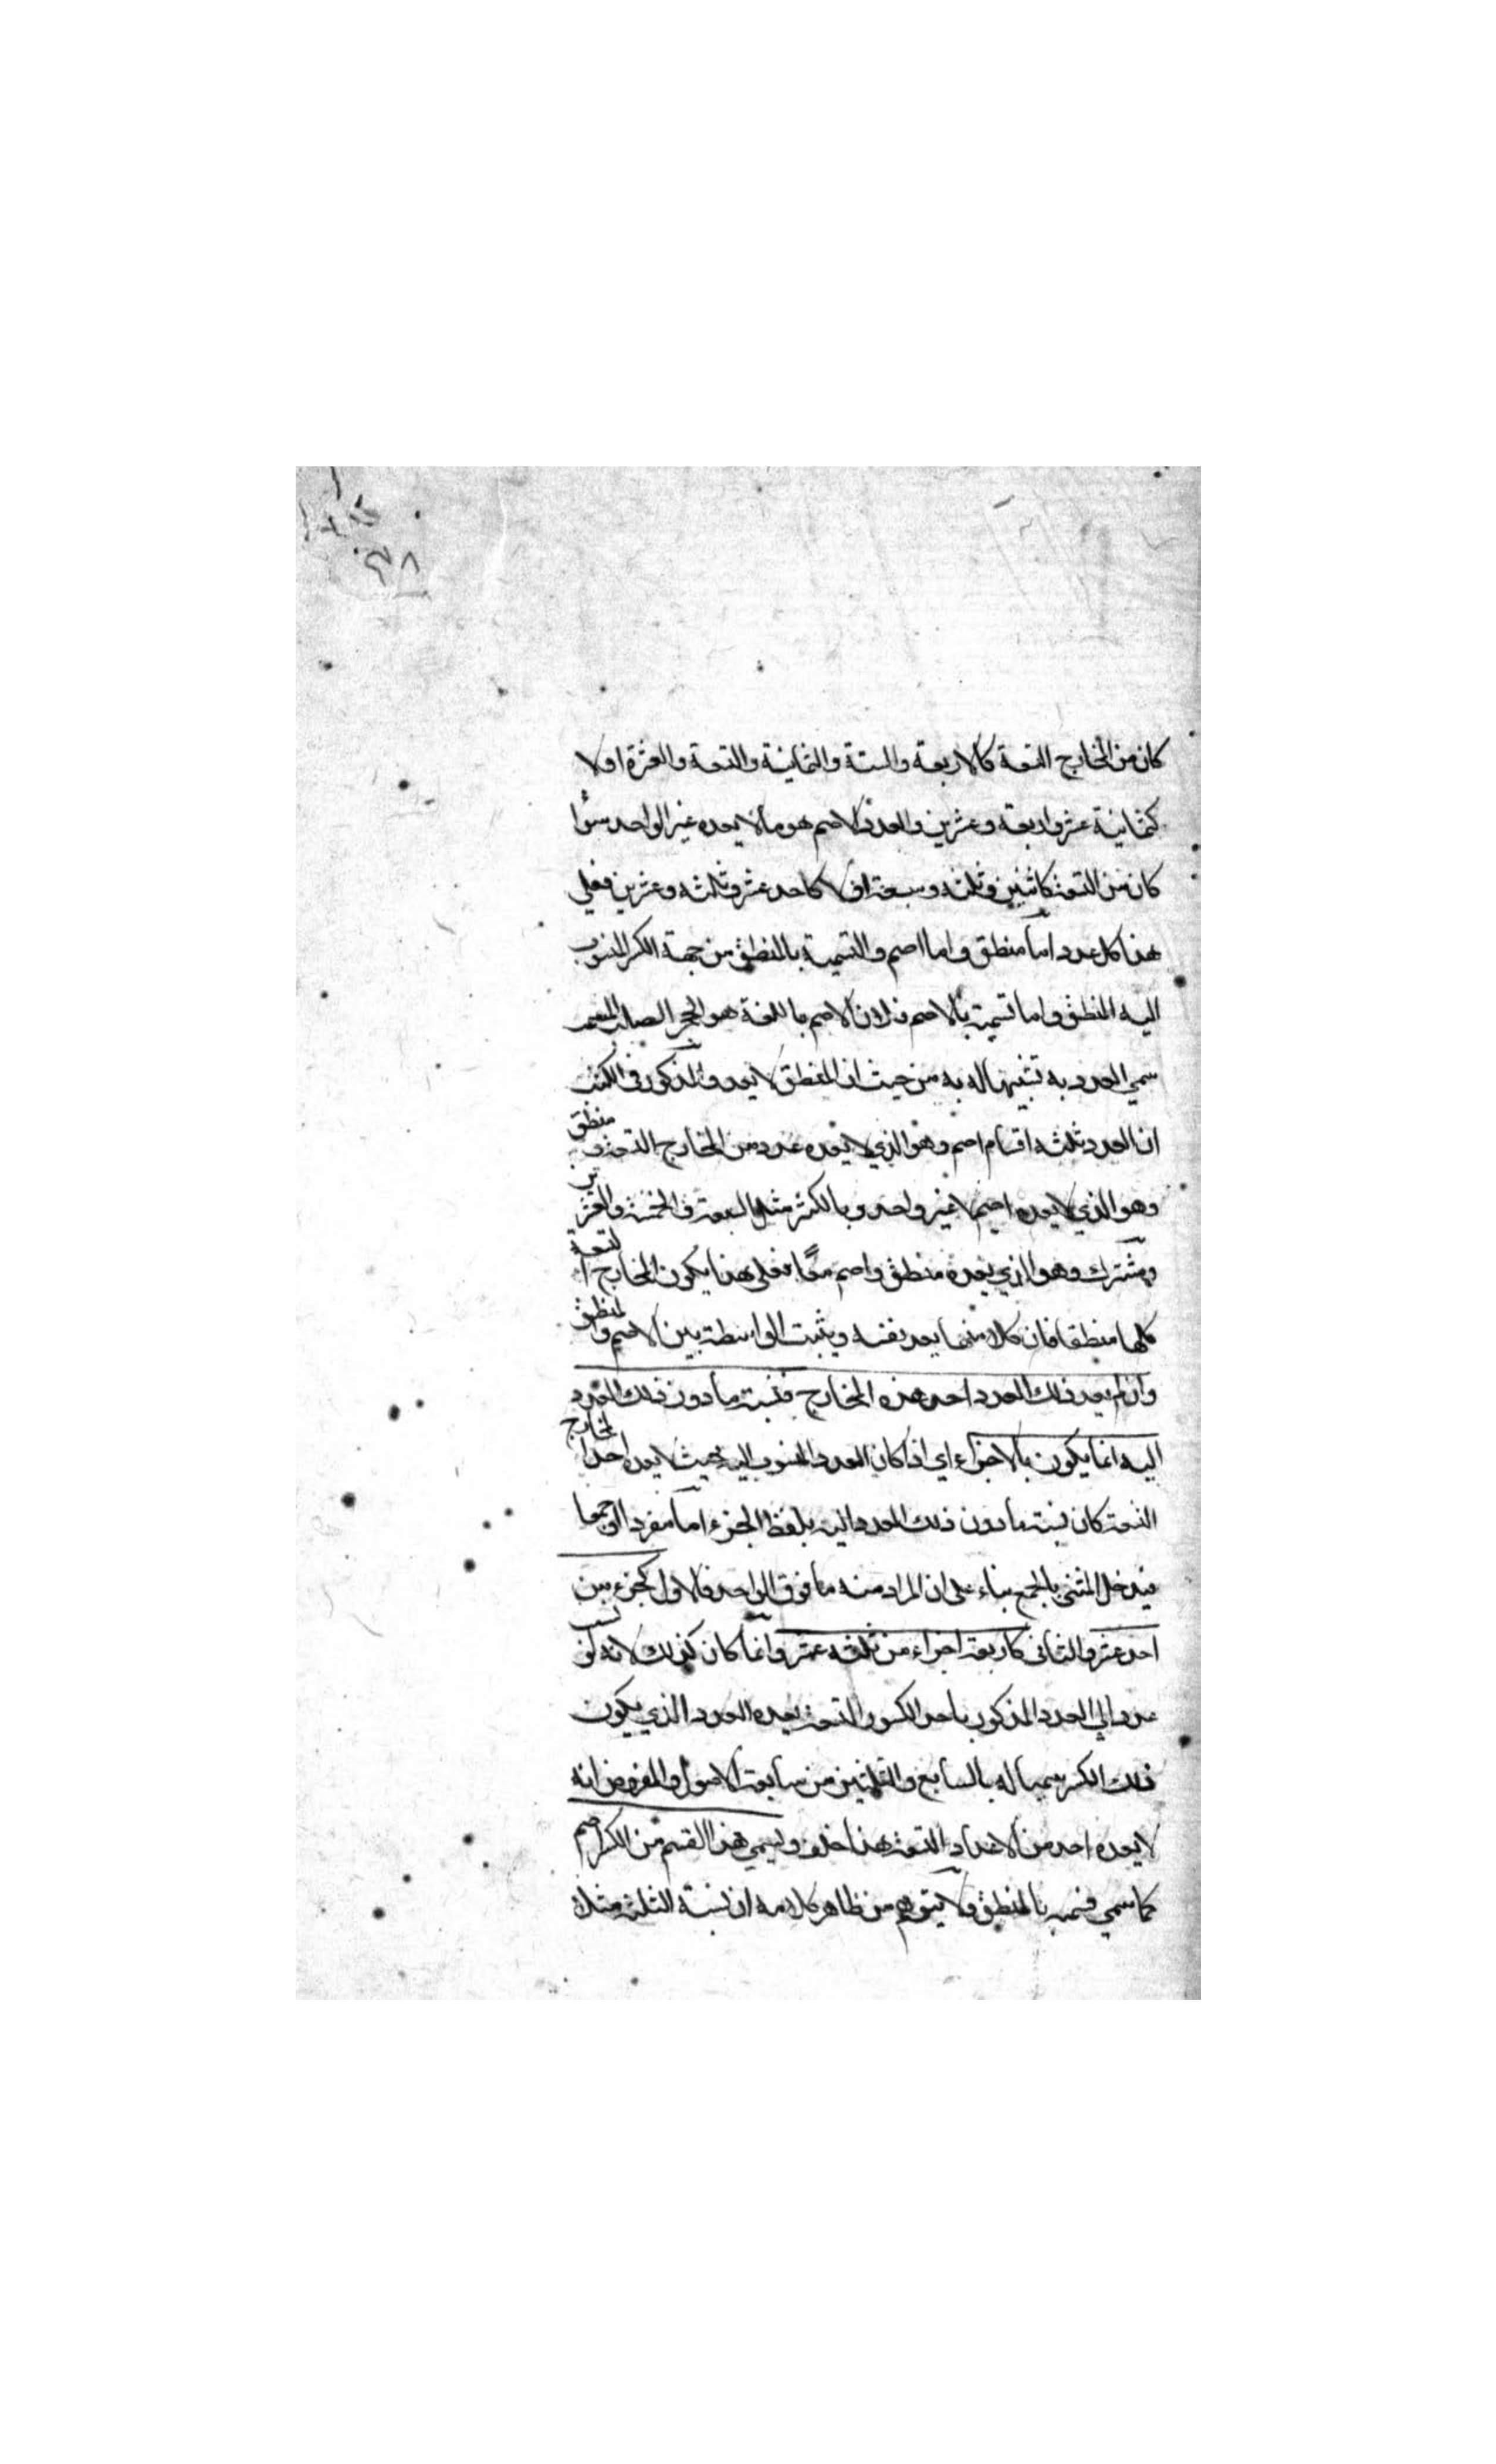 ٣٨
كان من المخارج التسعة كالاربعة والستة والثمانية والتسعة والعشرة اولا
كثمانية عشر واربعة وعشرين والعدد الاصم هو ما لا يعده غير الواحد سواء
كان من التسعة كاثنين وثلثه وسبعة اولا كاحد عشر وثلثه وعشرين فعلي
هذا كل عدد اما منطق واما اصم والتسمية بالمنطق من جهة الكسر المنسوب
اليه المنطق واما تسميته بالاصم فلان الاصم باللغة هو الحجر الصلب المصمت
سمي العدد به تشبيها له به من حيث ان المنطق لا يعده والمذكور في الكتب
ان العدد ثلثه اقسام اصم وهو الذي لا يعده عدد من المخارج التسعة ومنطق
وهو الذي لا يعده اصم غير واحد وبالكثر مثل السبعة والخمسة والعشرين
ومشترك وهو الذي يعده منطق واصم معًا فعلي هذا يكون المخارج التسعة
كلها منطقا فان كلا منها يعد نفسه ويثبت الواسطة بين الاصم والمنطق
وان لم يعد ذلك العدد احد هذه المخارج فنسبة ما دون ذلك العدد
اليه انما يكون بالاجزاء اي اذا كان العدد المنسوب اليه بحيث لا يعده احد المخارج
التسعة كان نسبة ما دون ذلك العدد اليه بلفظ الجزء اما مفردا او جمعا
فيدخل المثني بالجمع بناء على ان المراد منه ما فوق الواحد فالاول كجزء من
احد عشر والثاني كاربعة اجزاء من ثلثه عشر وانما كان كذلك لانه لو نسب
عدد الي العدد المذكور باحد الكسور التسعة يعده العدد الذي يكون
ذلك الكسر سميا له بالسابع والثلثين من سابعة الاصول والمفروض انه
لا يعده احد من الاعداد التسعة هذا خلف وليسمي هذا القسم من الكسر اصم
كما سمي قسيمه بالمنطق ولا يتوهم من ظاهر كلامه ان نسبة الثلثة مثلا